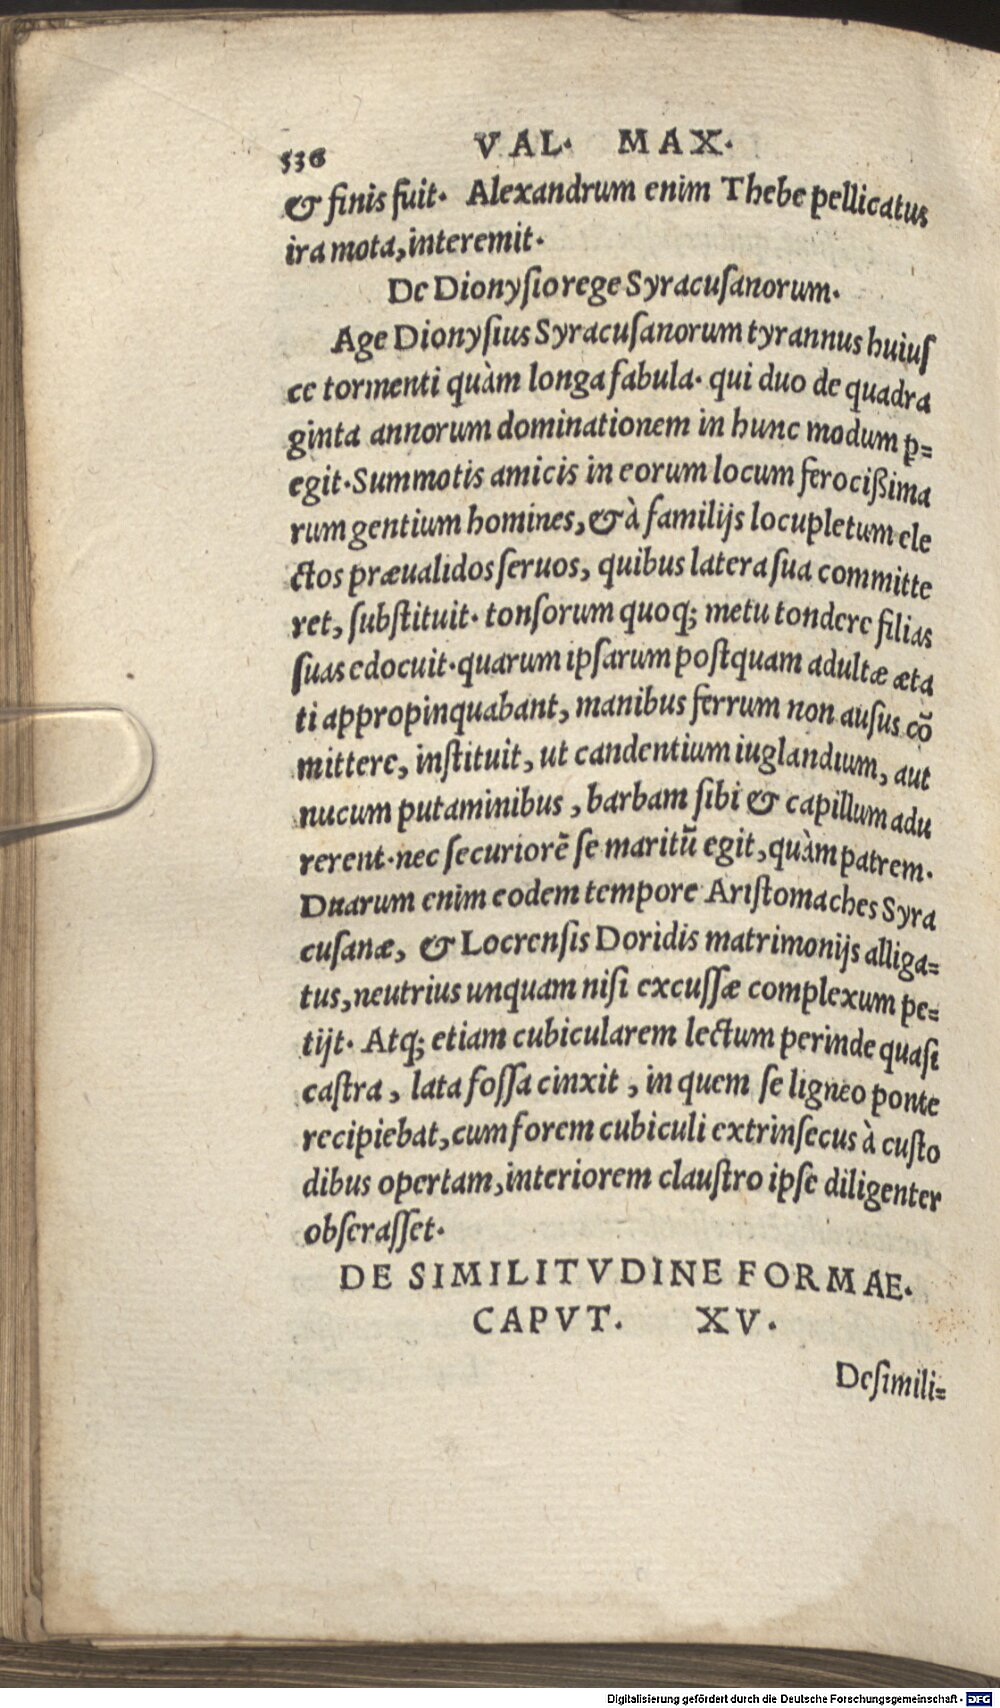 536 VAL. MAX.
& finis fuit. Alexandrum enim Thebe pellicatus
ira mota, interemit.
De Dionysio rege Syracusanorum.
Age Dionyſius Syracuſanorum tyrannus huiuſ
ce tormenti quàm longa fabula. qui duo de quadra
ginta annorum dominationem in hunc modum ꝑ=
egit. Summotis amicis in eorum locum ferocißima
rum gentium homines, & à familijs locupletum ele
ctos præualidos ſeruos, quibus latera ſua committe
ret, ſubſtituit. tonſorum quoq; metu tondere filias
ſuas edocuit. quarum ipſarum poſtquam adultæ æta
ti appropinquabant, manibus ferrum non auſus cõ
mittere, inſtituit, ut candentium iuglandium, aut
nucum putaminibus, barbam ſibi & capillum adu
rerent. nec ſecuriorẽ ſe maritũ egit, quàm patrem.
Duarum enim eodem tempore Ariſtomaches Syra
cuſanæ, & Locrenſis Doridis matrimonijs alliga=
tus, neutrius unquam niſi excuſſæ complexum pe=
tijt. Atq; etiam cubicularem lectum perinde quaſi
caſtra, lata foſſa cinxit, in quem ſe ligneo ponte
recipiebat, cum forem cubiculi extrinſecus à cuſto
dibus opertam, interiorem clauſtro ipſe diligenter
obſeraſſet.
DE SIMILITVDINE FORMAE.
CAPVT. XV.
De ſimili=
Digitalisierung gefördert durch die Deutsche Forschungsgemeinschaft - DFG